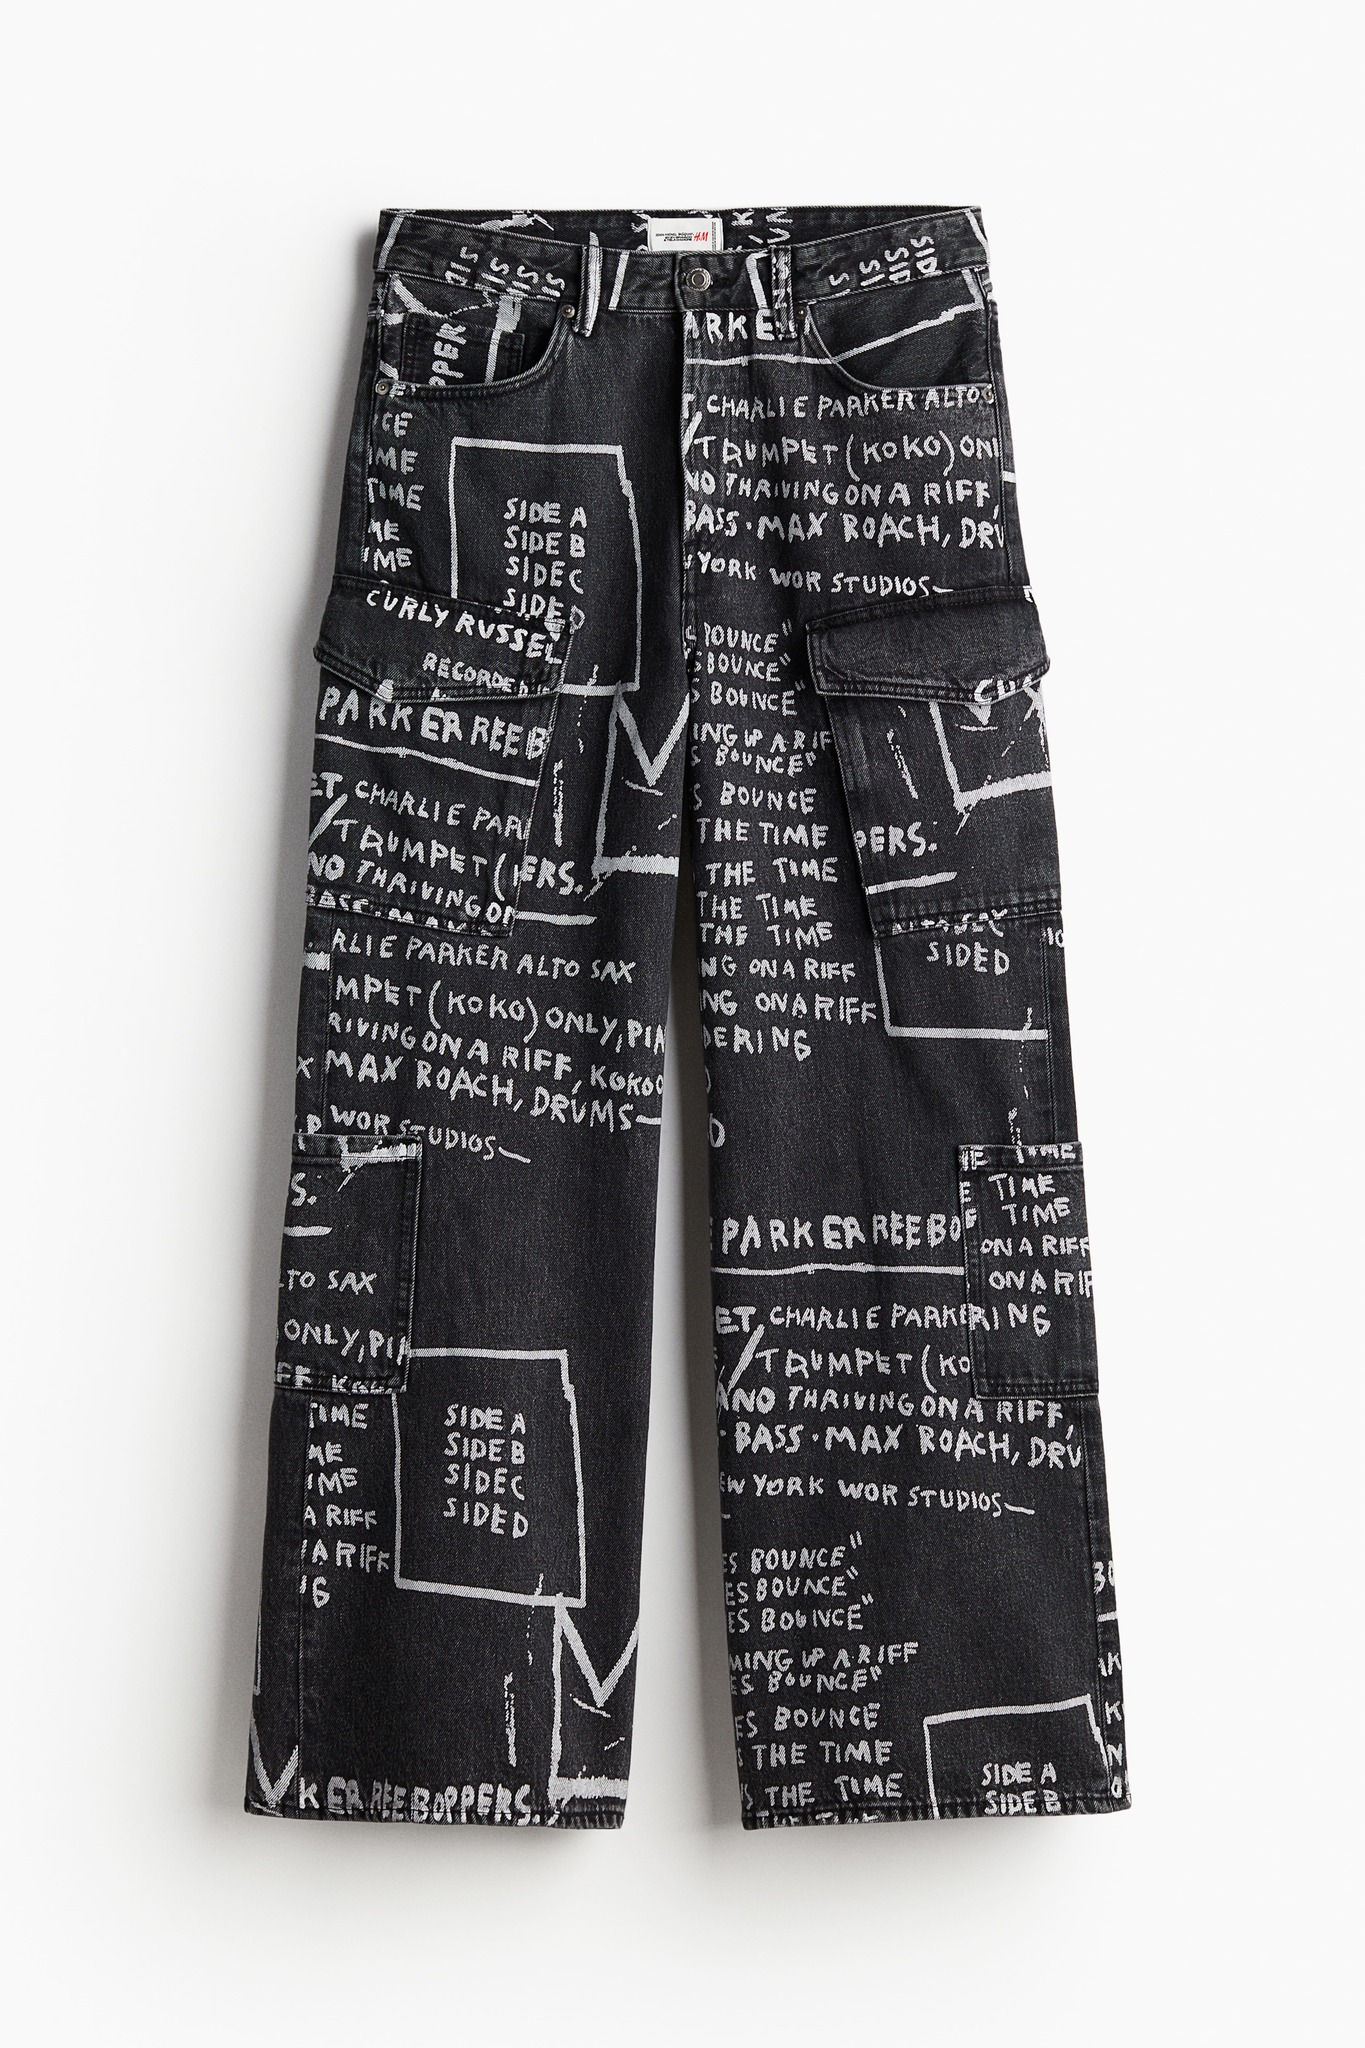 H&M
SIDE A
SIDE B
SIDE C
SIDE D
CURLY RUSSEL
RECORDED
PARKER REEB
ET, CHARLIE PAR
TRUMPET (
NO THRIVING ON
BASS · MAX
ERS.
RLIE PARKER ALTO SAX
MPET (KOKO) ONLY, PIA
RIVING ON A RIFF, KOKO
X MAX ROACH, DRUMS—
WOR STUDIOS—
S.
LTO SAX
ONLY, PI
FF KOK
SIDE A
SIDE B
SIDE C
SIDE D
TIME
ME
IME
A RIFF
A RIFF
G
KER REEBOPPERS.
ARKE
T, CHARLIE PARKER ALTO
TRUMPET (KOKO) ONL
NO THRIVING ON A RIFF,
BASS · MAX ROACH, DRU
YORK WOR STUDIOS—
BOUNCE"
S BOUNCE"
S BOUNCE"
ING UP A RIF
S BOUNCE"
S BOUNCE
THE TIME
THE TIME
THE TIME
THE TIME
NG ON A RIFF
NG ON A RIFF
DERING
D
PERS.
SIDE D
PARKER REEBO
ET, CHARLIE PARKE
TRUMPET (KO
ANO THRIVING ON A RIFF,
· BASS · MAX ROACH, DRU
EW YORK WOR STUDIOS—
TIME
TIME
TIME
ON A RIFF
ON A RIF
RING
ES BOUNCE"
ES BOUNCE"
ES BOUNCE"
MING UP A RIFF
ES BOUNCE"
ES BOUNCE
S THE TIME
S THE TIME
SIDE A
SIDE B